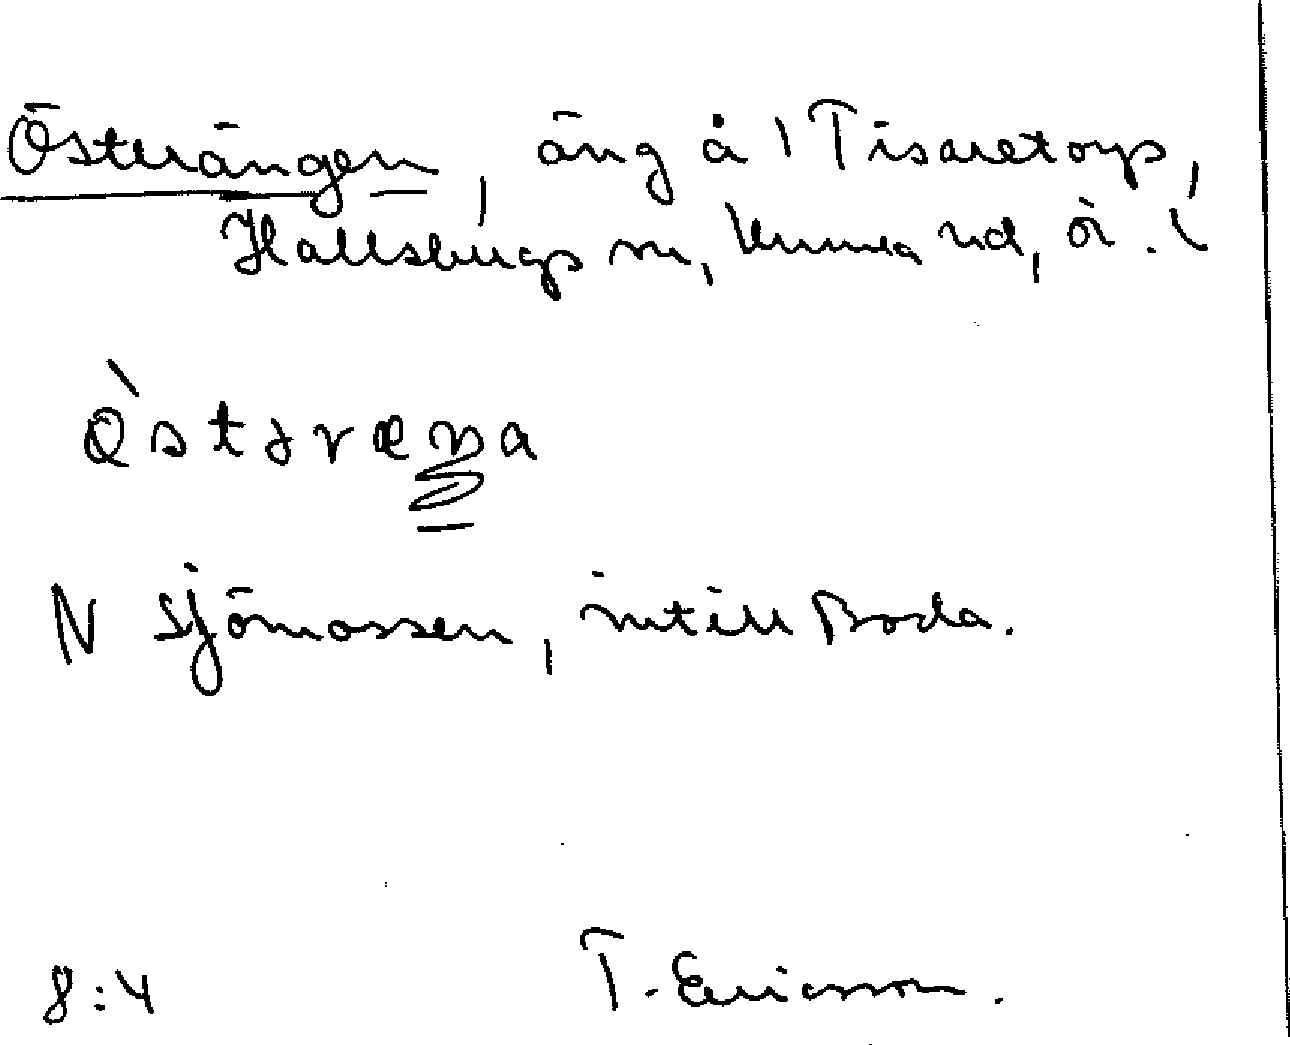 Österängen, äng å Tisaretorp,
Hallsbergs sn, Kumla hd, Ör. l
N Sjömossen, intill Boda.
8:4 T. Ericsson.